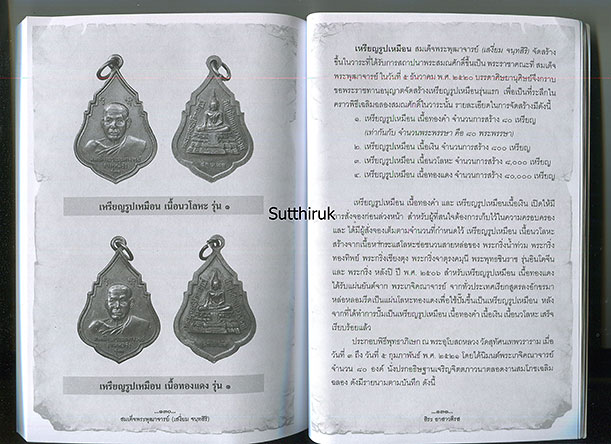 เหรียญรูปเหมือน เนื้อนวโลหะ รุ่น ๑
Sutthiruk
เหรียญรูปเหมือน เนื้อทองแดง รุ่น ๑
สมเด็จพระพุฒาจารย์ (เสงี่ยม จนฺทสิริ)
เหรียญรูปเหมือน สมเด็จพระพุฒาจารย์ (เสงี่ยม จนฺทสิริ) จัดสร้าง
ขึ้นในวาระที่ได้รับการสถาปนาพระสมณศักดิ์ขึ้นเป็น พระราชาคณะที่ สมเด็จ
พระพุฒาจารย์ ในวันที่ ๕ ธันวาคม พ.ศ. ๒๕๒๐ บรรดาศิษยานุศิษย์จึงกราบ
ขอพระราชทานอนุญาตจัดสร้างเหรียญรูปเหมือนรุ่นแรก เพื่อเป็นที่ระลึกใน
คราวพิธีเฉลิมฉลองสมณศักดิ์ในวาระนั้น รายละเอียดในการจัดสร้างมีดังนี้
๑. เหรียญรูปเหมือน เนื้อทองคำ จำนวนการสร้าง ๘๐ เหรียญ
(เท่ากันกับ จำนวนพระพรรษา คือ ๘๐ พระพรรษา)
๒. เหรียญรูปเหมือน เนื้อเงิน จำนวนการสร้าง ๘๐๐ เหรียญ
๓. เหรียญรูปเหมือน เนื้อนวโลหะ จำนวนการสร้าง ๘,๐๐๐ เหรียญ
๔. เหรียญรูปเหมือน เนื้อทองแดง จำนวนการสร้าง ๘๐,๐๐๐ เหรียญ
เหรียญรูปเหมือน เนื้อทองคำ และ เหรียญรูปเหมือนเนื้อเงิน เปิดให้มี
การสั่งจองก่อนล่วงหน้า สำหรับผู้ที่สนใจต้องการเก็บไว้ในความครอบครอง
และ ได้มีผู้สั่งจองเต็มตามจำนวนที่กำหนดไว้ เหรียญรูปเหมือน เนื้อนวโลหะ
สร้างจากเนื้อ โลหะช่อชนวนสายหล่อของ พระกริ่งน้ำท่วม พระกริ่ง
ทองทิพย์ พระกริ่งเชียงตุง พระกริ่งจาตุรงคมุนี พระพุทธชินราช รุ่นอินโดจีน
และ พระกริ่ง หลังปี ปี พ.ศ. ๒๕๐๖ สำหรับเหรียญรูปเหมือน เนื้อทองแดง
ได้รับแผ่นยันต์จาก พระเกจิคณาจารย์ จากทั่วประเทศเรียกสูตรลงอักขระมา
หล่อหลอมรีดเป็นแผ่นโลหะทองแดงเพื่อใช้ปั๊มขึ้นเป็นเหรียญรูปเหมือน หลัง
จากที่ได้ทำการปั๊มเป็นเหรียญรูปเหมือน เนื้อทองคำ เนื้อเงิน เนื้อนวโลหะ เสร็จ
เรียบร้อยแล้ว
ประกอบพิธีพุทธาภิเษก ณ พระอุโบสถหลวง วัดสุทัศนเทพวราราม เมื่อ
วันที่ ๓ ถึง วันที่ ๕ กุมภาพันธ์ พ.ศ. ๒๕๒๑ โดยได้นิมนต์พระเกจิคณาจารย์
จำนวน ๘๐ องค์ นั่งปรกอธิษฐานเจริญจิตตภาวนาตลอดงานสมโภชเฉลิม
ฉลอง ดังมีรายนามตามบันทึก ดังนี้